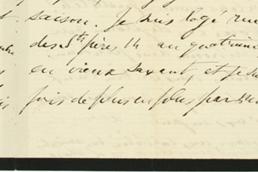 saison. Je suis logé rue
des Sts pères 14 au quatrième
en vieux savant, et je
fois de plus en plus par